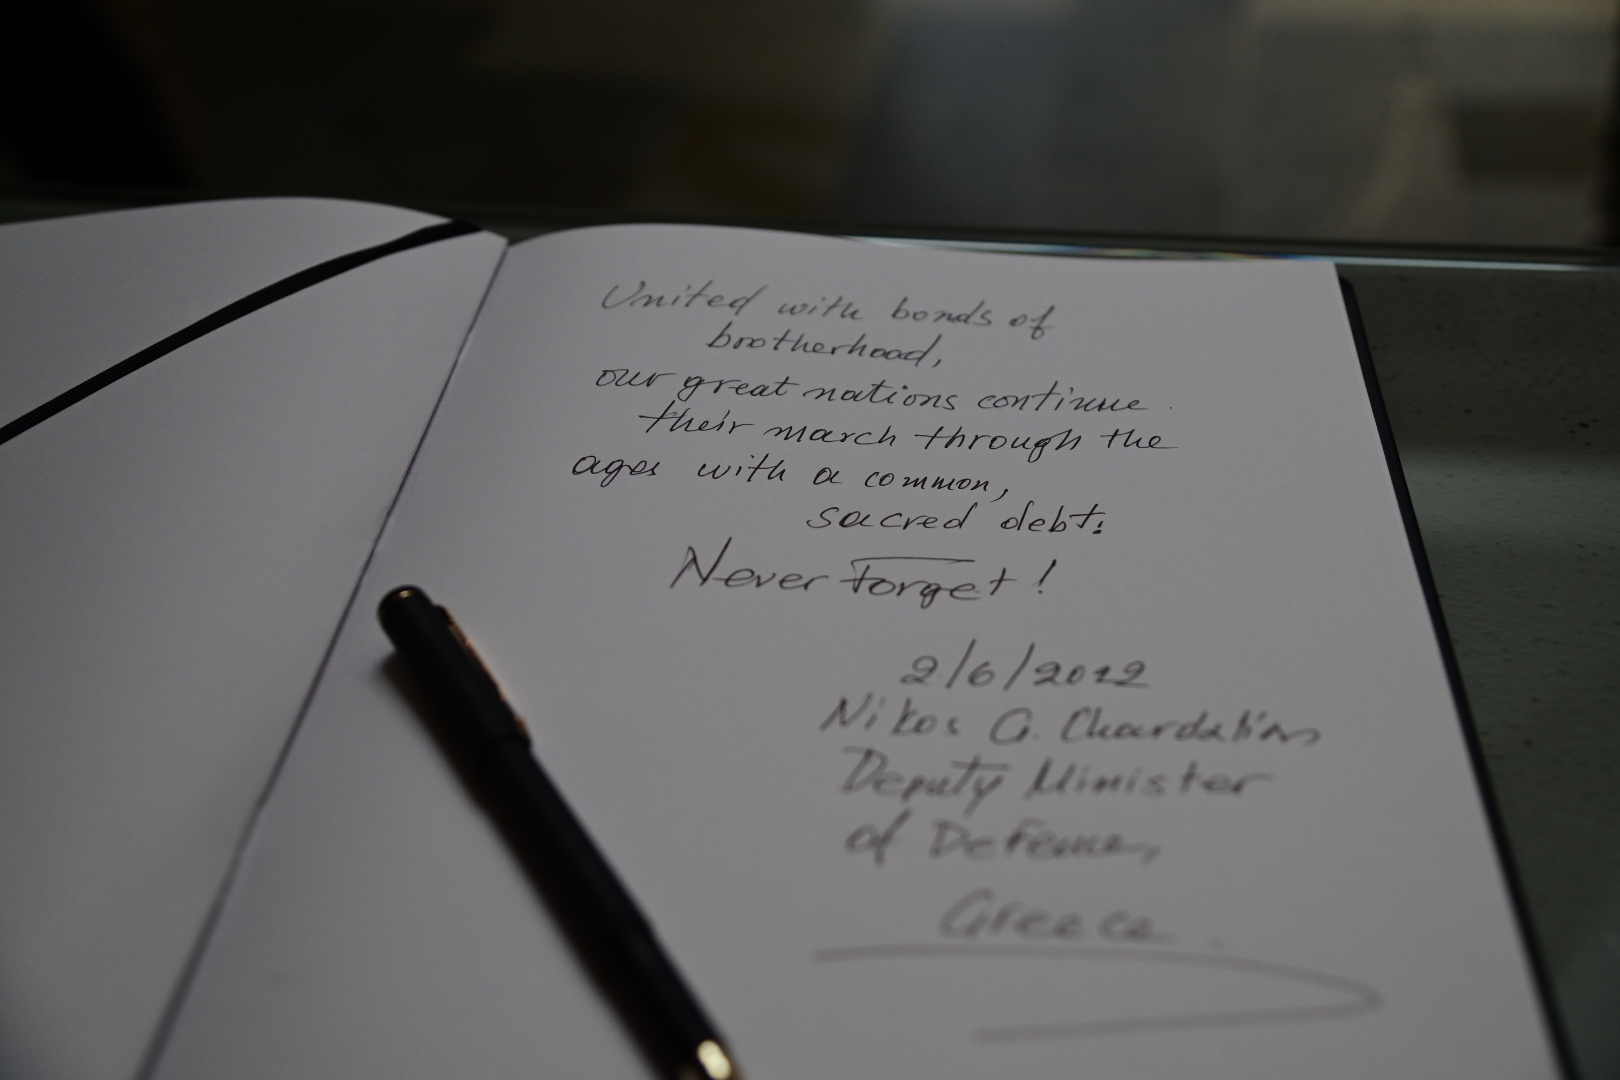 United with bonds of
brotherhood,
our great nations continue
their march through the
ages with a common,
sacred debt.
Never Forget!
2/6/2022
Nikos G. Chardalias
Deputy Minister
of Defence,
Greece